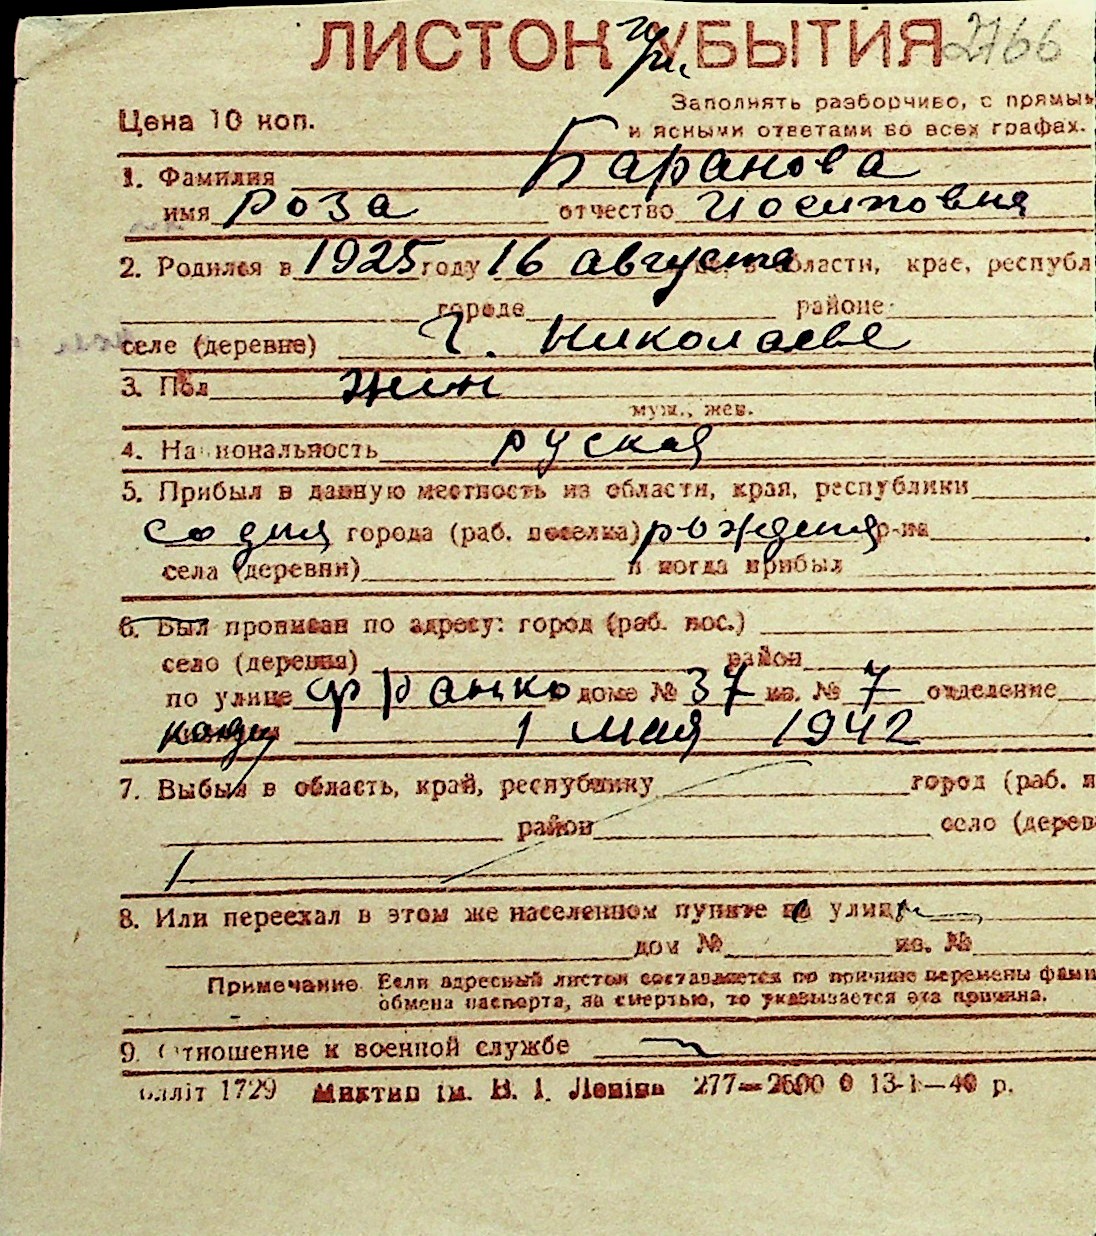 ЛИСТОК УБЫТИЯ 2766
Цена 10 коп.
Заполнять разборчиво, с прямым
и ясными ответами во всех графах.
1. Фамилия Баранова
имя Роза отчество Иосиповна
2. Родился в 1925 году 16 августа области, крае, республ
городе районе
селе (деревне) г. Николаеве
3. Пол жен
муж., жен.
4. Национальность руская
5. Прибыл в данную местность из области, края, республики
со дня города (раб. поселка) рождения р-на
села (деревни) и когда прибыл
6. Был прописан по адресу: город (раб. пос.)
село (деревня) район
по улице Франко доме № 37 кв. № 7 отделение
1 мая 1942
7. Выбыл в область, край, республику город (раб. п
район село (дерев
8. Или переехал в этом же населенном пункте на улицу
дом № кв. №
Примечание. Если адресный листок составляется по причине перемены фами
обмена паспорта, за смертью, то указывается эта причина.
9. Отношение к военной службе
1729 Миктип ім. В. І. Леніна 277—2600 13-1—40 р.